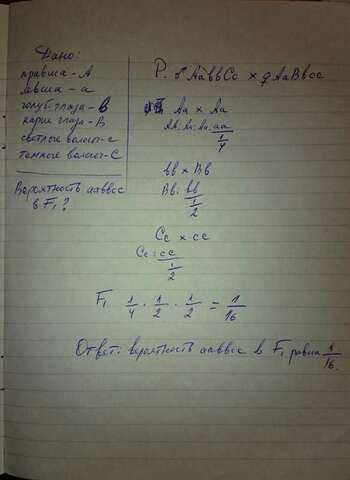 Дано:
правша - А
левша - а
голуб. глаза - в
карие глаза - В
светлые волосы - с
темные волосы - С
Вероятность ааввсс
в F₁?
Р. ♂ АаbbСс × ♀ АаВbсс
Аа × Аа
АА: Аа: Аа: аа
1/4
bb × Вb
Вb: bb
1/2
Сс × сс
Сс: сс
1/2
F₁ 1/4 · 1/2 · 1/2 = 1/16
Ответ: вероятность ааввсс в F₁ равна 1/16.